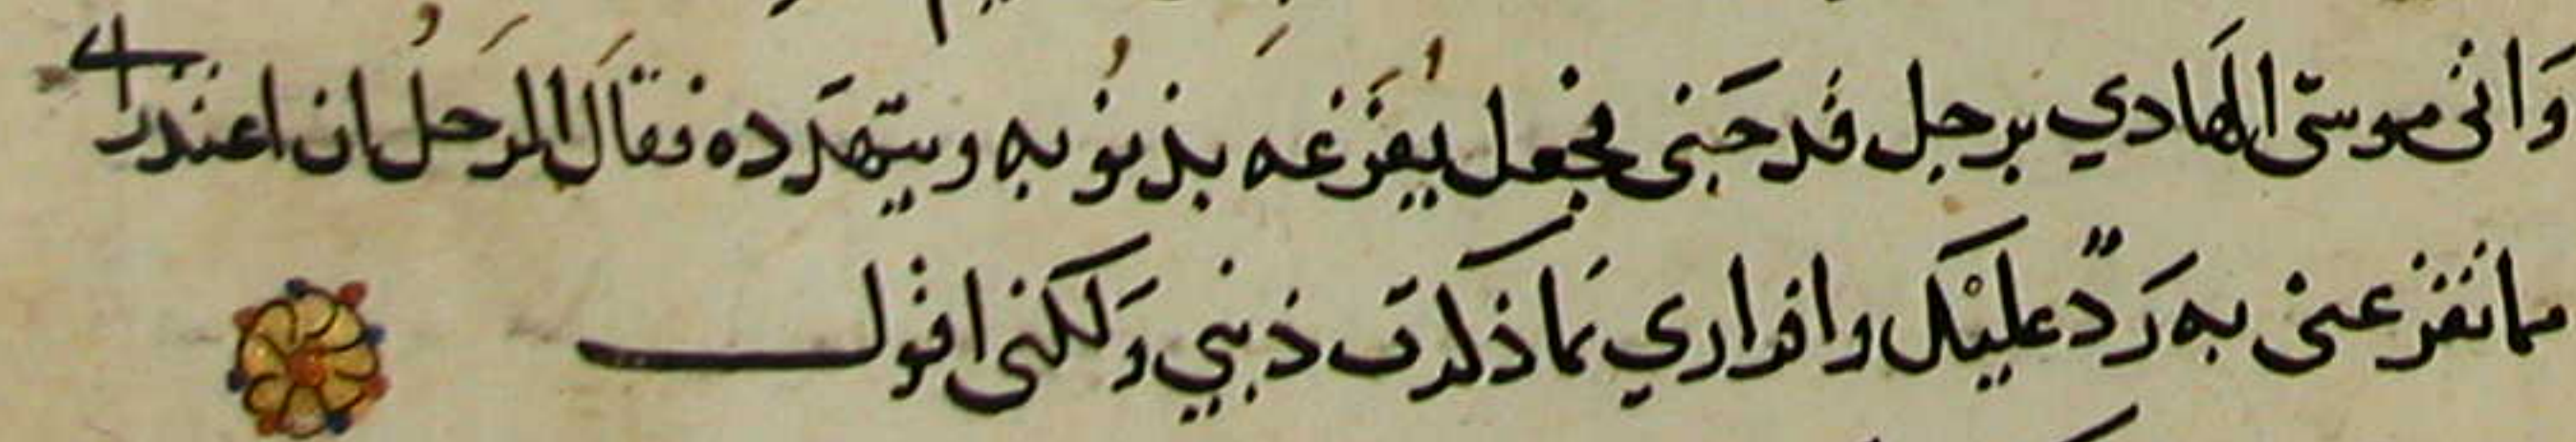 وَاتى موسىّ الهَادي برجل قَد جَنى فجعل يُفَزعه بذنوُبه ويتهَدده فقالَ الرَجلُ ان اعتذاري
مما تَفزعنى به رَدٌّ عليْك واقراري بمَا ذكرتَ ذنبي وَلكنى اقول